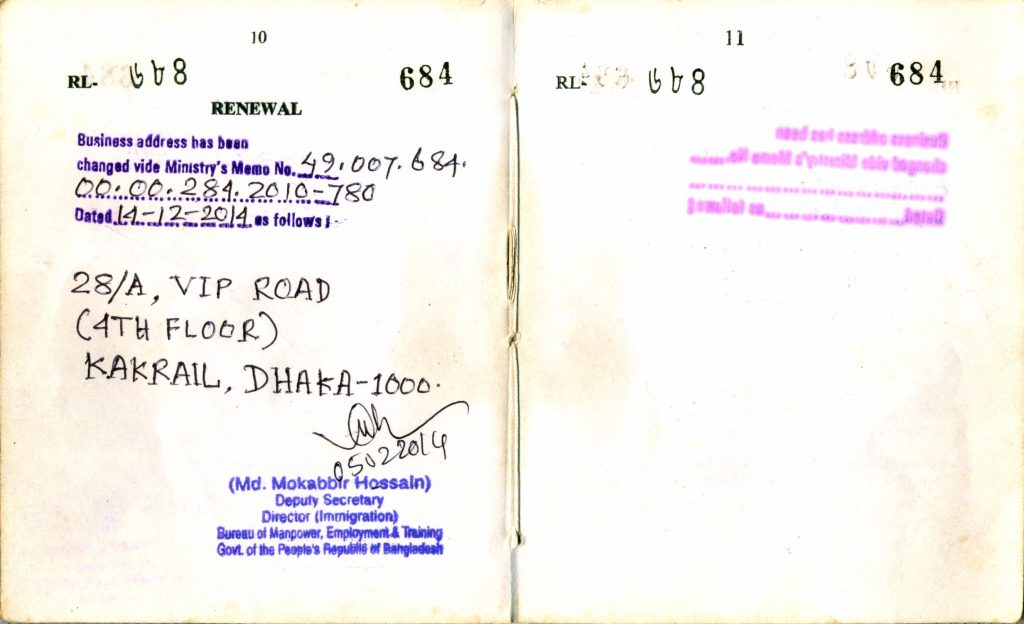 10
RL- ৬৮৪ 684
RENEWAL
Business address has been
changed vide Ministry's Memo No. 49.007.684.
00.00.284.2010-780
Dated 14-12-2014 as follows;
28/A, VIP ROAD
(4TH FLOOR)
KAKRAIL, DHAKA-1000.
05022014
(Md. Mokabbir Hossain)
Deputy Secretary
Director (Immigration)
Bureau of Manpower, Employment & Training
Govt. of the People's Republic of Bangladesh
11
RL- ৬৮৪ 684